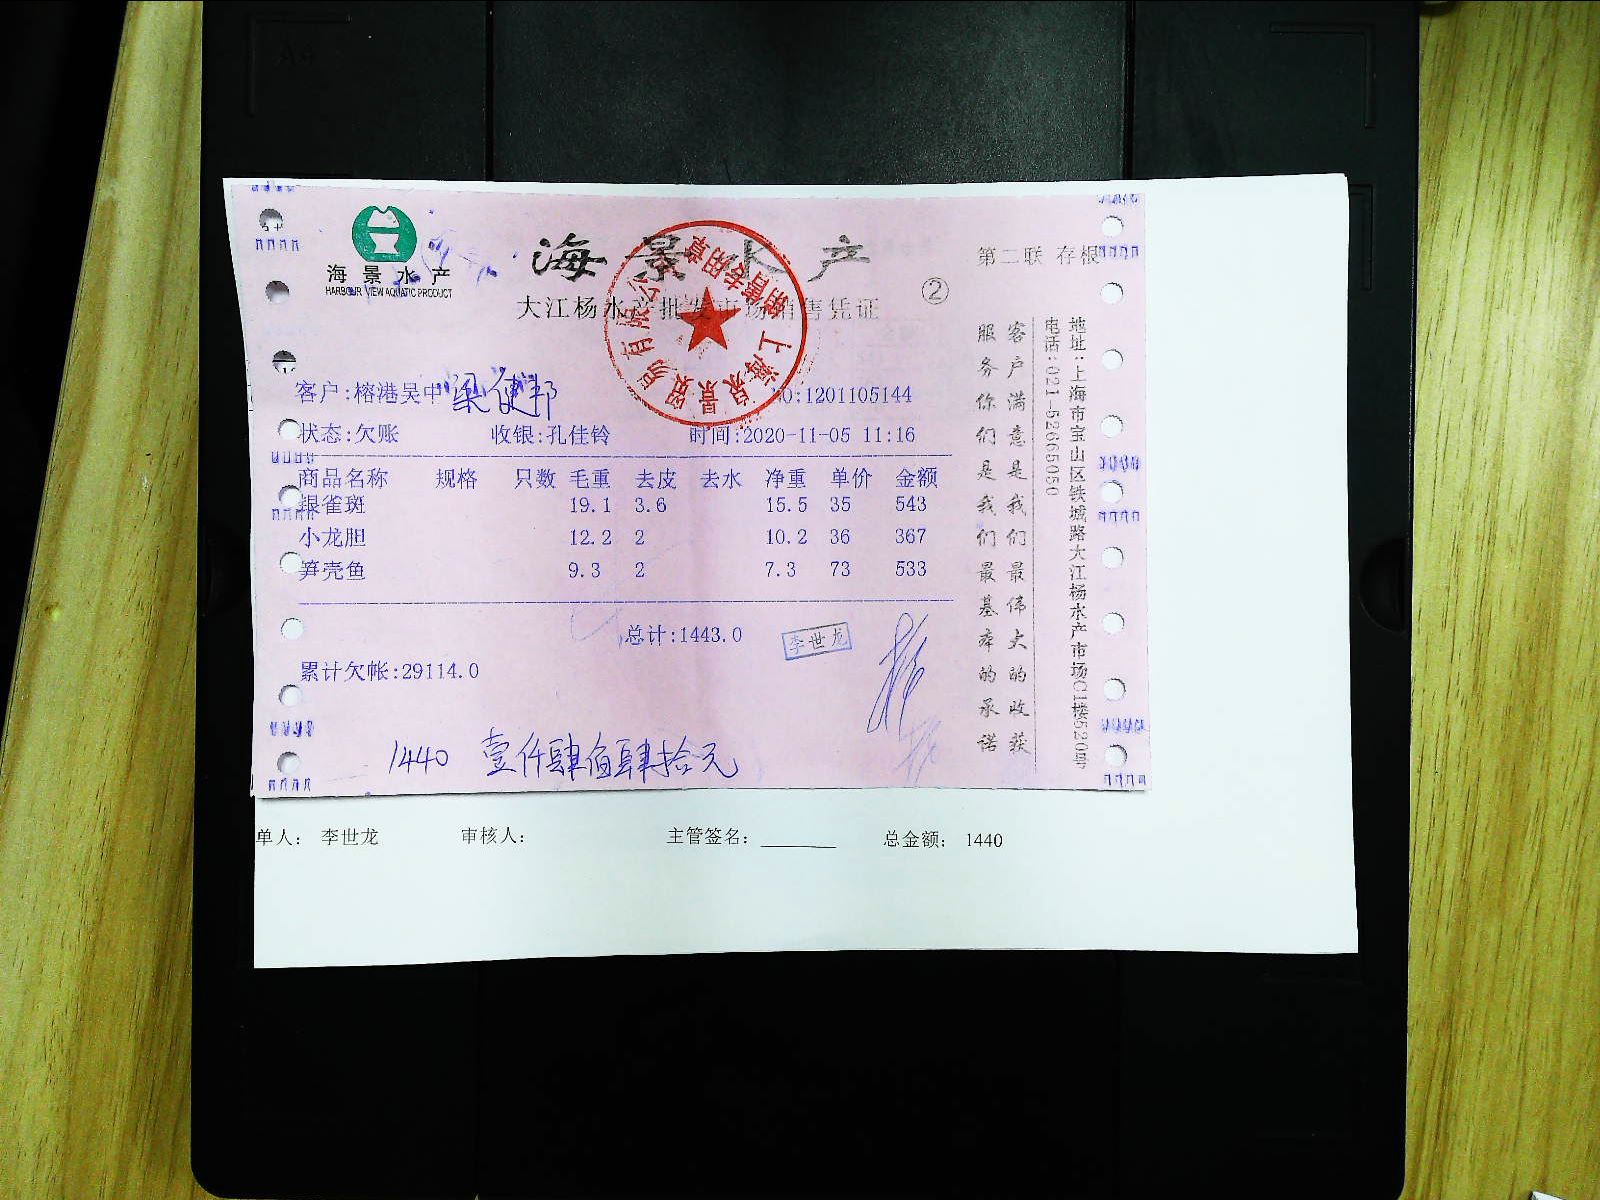 海景水产
HARBOUR VIEW AQUATIC PRODUCT
海景水产
大江杨水产批发市场销售凭证
②
第二联 存根
客户:榕港吴中
NO:1201105144
状态:欠账 收银:孔佳铃 时间:2020-11-05 11:16
商品名称 规格 只数 毛重 去皮 去水 净重 单价 金额
银雀斑 19.1 3.6 15.5 35 543
小龙胆 12.2 2 10.2 36 367
笋壳鱼 9.3 2 7.3 73 533
总计:1443.0
李世龙
累计欠帐:29114.0
1440 壹仟肆佰肆拾元
客户满意是我们最伟大的收获
服务你们是我们最基本的承诺
地址:上海市宝山区铁城路大江杨水产市场C1楼520号
电话:021-52665050
单人: 李世龙 审核人: 主管签名: 总金额: 1440